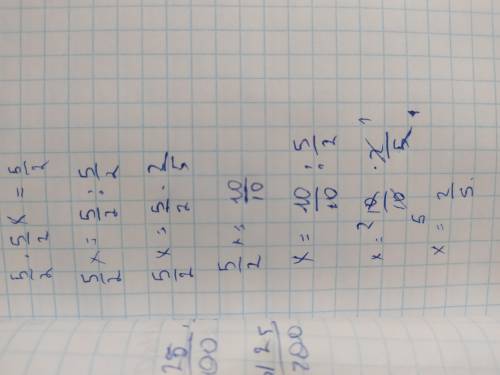 5/2 · 5/2 x = 5/2
5/2 x = 5/2 : 5/2
5/2 x = 5/2 · 2/5
5/2 x = 10/10
x = 10/10 : 5/2
x = 10/10 · 2/5
x = 2/5.
25
00
25
200